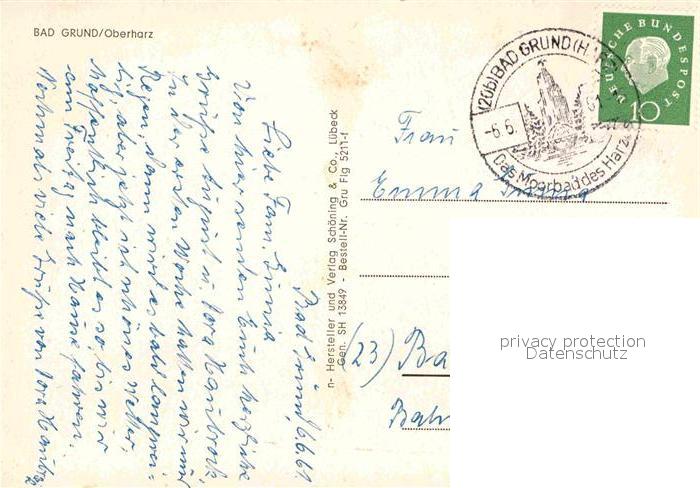 BAD GRUND/Oberharz
Bad Grund, 6.6.61
Liebe Fam.
Von hier senden Euch herzliche
Grüße August u. Dora
In der ersten Woche hatten wir nur
Regen, dann wird es bald langwei-
lig, aber jetzt ist schönes Wetter,
hoffentlich bleibt es so bis wir
am Freitag nach Hause fahren.
Nochmals viele Grüße von Dora
n- Hersteller und Verlag Schöning & Co., Lübeck
Gen. SH 13849 - Bestell-Nr. Gru Flg 5211-f
(20b) BAD GRUND (HARZ)
-6.6.61
Das Moorbad des Harzes
DEUTSCHE BUNDESPOST
10
Frau
Emma
(23) Ba
Bah
privacy protection
Datenschutz